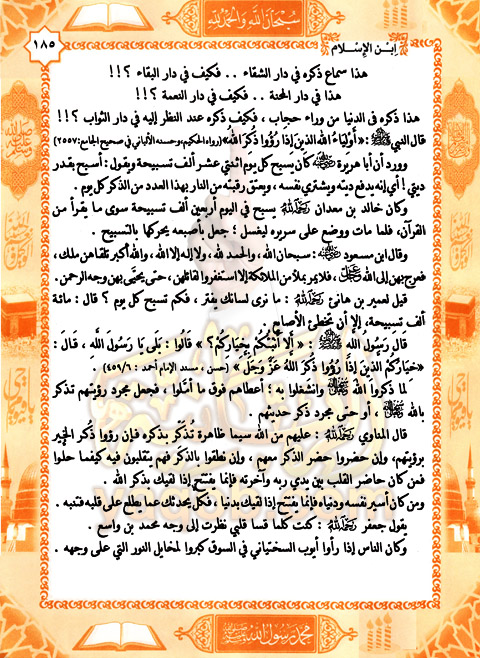 سبحان الله والحمد لله
ابن الإسلام
١٨٥
هذا سماع ذكره في دار الشقاء . . فكيف في دار البقاء ؟!!
هذا في دار المحنة . . فكيف في دار النعمة ؟!!
هذا ذكره في الدنيا من وراء حجاب ، فكيف ذكره عند النظر إليه في دار الثواب ؟!!
قال النبي ﷺ : « أولياء الله الذين إذا رؤوا ذكر الله » (رواه الحكيم، وحسنه الألباني في صحيح الجامع: ٢٥٥٧)
وورد أن أبا هريرة كان يسبح كل يوم اثنتي عشر ألف تسبيحة ويقول : أسبح بقدر
ديتي ! أي إنه يدفع ديته ويشتري نفسه ، ويعتق رقبته من النار بهذا العدد من الذكر كل يوم .
وكان خالد بن معدان رحمه الله يسبح في اليوم أربعين ألف تسبيحة سوى ما يقرأ من
القرآن، فلما مات ووضع على سريره ليغسل ؛ جعل بأصبعه يحركها بالتسبيح .
وقال ابن مسعود : سبحان الله ، والحمد لله ، ولا إله إلا الله ، والله أكبر تلقاهن ملك ،
فعرج بهن إلى الله ، فلا يمر بملأ من الملائكة إلا استغفروا لقائلهن ، حتى يحيَّى بهن وجه الرحمن .
قيل لعمير بن هانئ رحمه الله : ما نرى لسانك يفتر ، فكم تسبح كل يوم ؟ قال : مائة
ألف تسبيحة، إلا أن تخطئ الأصابع .
قال رسول الله ﷺ : « أَلا أُنَبِّئُكُمْ بِخِيَارِكُمْ ؟ » قَالُوا : بَلَى يَا رَسُولَ اللَّهِ ، قَالَ :
« خِيَارُكُمُ الَّذِينَ إِذَا رُؤُوا ذُكِرَ اللهُ عَزَّ وَجَلَّ » (حسن ، مسند الإمام أحمد : ٤٥٩/٦)
لما ذكروا الله وانشغلوا به ؛ أعطاهم فوق ما أملوا ، فجعل مجرد رؤيتهم تذكر
بالله ، أو حتى مجرد ذكر حديثهم .
قال المناوي رحمه الله : عليهم من الله سيما ظاهرة تُذَكِّر بذكره فإن رؤوا ذُكر الخير
برؤيتهم ، وإن حضروا حضر الذكر معهم ، وإن نطقوا بالذكر فهم يتقلبون فيه كيفما حلوا
فمن كان حاضر القلب بين يدي ربه وآخرته فإنما يفتتح إذا لقيك بذكر الله .
ومن كان أسير نفسه ودنياه فإنما يفتتح إذا لقيك بدنيا ، فكل يحدثك عما يطلع على قلبه فتنبه .
يقول جعفر رحمه الله : كنت كلما قسا قلبي نظرت إلى وجه محمد بن واسع .
وكان الناس إذا رأوا أيوب السختياني في السوق كبروا لمخايل النور التي على وجهه .
محمد رسول الله ﷺ